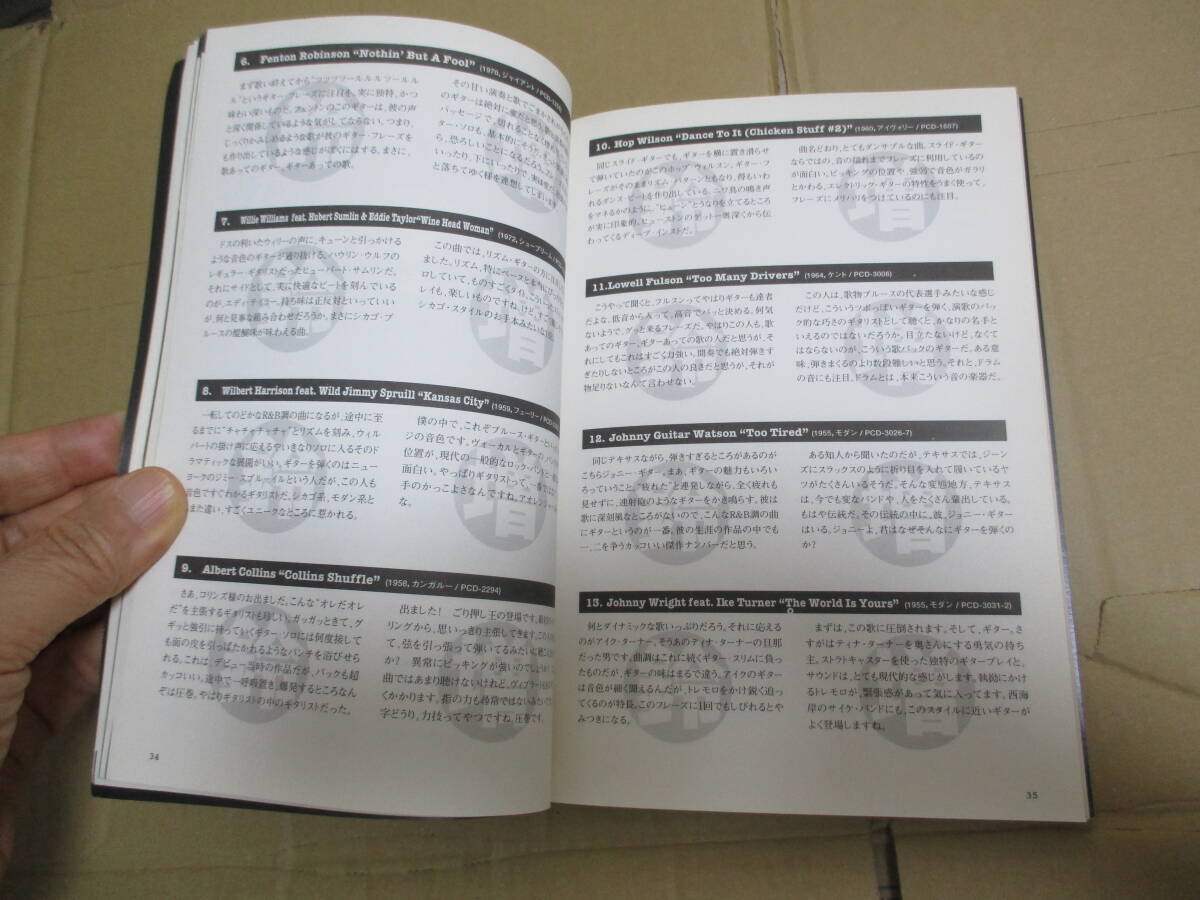 6. Fenton Robinson “Nothin' But A Fool” (1970, ジャイアント/PCD-
まず歌い終えてから
ル”というギター・フレーズに注目を。実に独特、かつ
味わい深いものと。フェントンのこのギターは、彼の声
と深く関係しているような気がしてならない。つまり、
じっくりかみしめるような歌が彼のギター・フレーズを
も作り出しているような感じがぼくにはする。まさに、
歌あってのギター、ギターあっての歌。
その甘い演奏と歌でごまかされ
のギターは絶対に変だと思う。
パッセージで、切れることな
ター・ソロも、基本的にそう。
ら、恐ろしいことになるだろう。
いったり、下にいったりで、
と落ちてゆく様を連想してしまいま
7. Willie Williams feat. Hubert Sumlin & Eddie Taylor “Wine Head Woman” (1972, シュープリーム/PC
ドスの利いたウィリーの声に、キューンと引っかける
ような音色のギターが通り抜ける。ハウリン・ウルフの
レギュラー・ギタリストだったヒューバート・サムリンだ。
それにサイドとして、実に快適なビートを刻んでいる
のが、エディ・テイラー。持ち味は正反対といっていい
が、何と見事な組み合わせだろうか。まさにシカゴ・ブ
ルースの醍醐味が味わえる曲。
この曲では、リズム・ギターの方に
ました。リズム、特にベースと
ロしていて、ものすごくタイト。こういう
レイも、楽しいものですね。けど、すご
シカゴ・スタイルのお手本みたいな
8. Wilbert Harrison feat. Wild Jimmy Spruill “Kansas City” (1959, フューリー/PCD
一転してのどかなR&B調の曲になるが、途中に至
るまでに“チャチャチャチャ”とリズムを刻み、ウィル
バートの掛け声に応えるやいきなりソロに入るそのド
ラマティックな展開がいい。ギターを弾くのはニュー
ヨークのジミー・スプルーイルという人だが、この人も
音色ですぐわかるギタリストだ。シカゴ系、モダン系と
また違い、すごくユニークなところに惹かれる。
僕の中で、これぞブルース・ギターとい
ジの音色です。ヴォーカルとギターのバラン
位置が、現代の一般的なロック・バンドと
面白い。やっぱりギタリストって、一番
手のかっこよさなんですね。アオレンジャー
な。
9. Albert Collins “Collins Shuffle” (1958, カンガルー/PCD-2294)
さあ、コリンズ様のお出ました。こんな“オレだオレ
だ”を主張するギタリストも珍しい。ガッガッときて、グ
ギッと強引に持っていくギター・ソロには何度接して
も面の皮を引っぱたかれるようなパンチを浴びせら
れる。これは、デビュー当時の作品だが、バックも超
カッコいい。途中で一呼吸置き、爆発するところなん
ぞは圧巻。やはりギタリストの中のギタリストだった。
出ました! ごり押し王の登場です。
リングから、思いっきり主張してきます。この
て、弦を引っ張って弾いてるみたいに
か? 異常にピッキングが強いのでしょうか
曲ではあまり聴けないけれど、ヴィブラート
くわかります。指の力も尋常ではないみたいで
字どうり、力技ってやつですね。圧巻です。
34
10. Hop Wilson “Dance To It (Chicken Stuff #2)” (1960, アイヴォリー/PCD-1607)
同じスライド・ギターでも、ギターを横に置き滑らせ
て弾いていたのがこのホップ・ウィルスン。ギター・フ
レーズがそのままリズム・パターンともなり、得もいわ
れるダンス・ビートを作り出している。ニワ鳥の鳴き声
をマネるかのように、“ヒューン”とうなりを立てるところ
が実に印象的。ヒューストンのゲットー奥深くから伝
わってくるディープ・インストだ。
曲名どおり、とてもダンサブルな曲。スライド・ギター
ならではの、音の揺れまでフレーズに利用しているの
が面白い。ピッキングの位置や、強弱で音色がガラリ
とかわる、エレクトリック・ギターの特性をうまく使って、
フレーズにメリハリをつけているのにも注目。
11. Lowell Fulson “Too Many Drivers” (1964, ケント/PCD-3006)
こうやって聞くと、フルスンってやはりギターも達者
だよな。低音から入って、高音でパッと決める。何気
ないようで、グっと来るフレーズだ。やはりこの人も、歌
あってのギター、ギターあっての歌の人だと思うが、そ
れにしてもこれはすごく力強い。間奏でも絶対弾きす
ぎたりしないところがこの人の良さだと思うが、それが
物足りないなんて言わせない。
この人は、歌物ブルースの代表選手みたいな感じ
だけど、こういうツボっぽいギターを弾く、演歌のバッ
ク的な巧さのギタリストとして聴くと、かなりの名手と
いえるのではないだろうか。目立たないけど、なくて
はならないのが、こういう歌バックのギターだ。ある意
味、弾きまくるのより数段難しいと思う。それと、ドラム
の音にも注目。ドラムとは、本来こういう音の楽器だ。
12. Johnny Guitar Watson “Too Tired” (1955, モダン/PCD-3026-7)
同じテキサスながら、弾きすぎるところがあるのが
こちらジョニー・ギター。まあ、ギターの魅力もいろい
ろっていうこと。“疲れた”と連発しながら、全く疲れも
見せずに、連射砲のようなギターをかき鳴らす。彼は
歌に深刻風なところがないので、こんなR&B調の曲
にギターというのが一番。彼の生涯の作品の中でも
一、二を争うカッコいい傑作ナンバーだと思う。
ある知人から聞いたのだが、テキサスでは、ジーン
ズにスラックスのように折り目を入れて履いているヤ
ツがたくさんいるそうだ。そんな変態地方、テキサス
は、今でも変なバンドや、人をたくさん輩出している。
もはや伝統だ。その伝統の中に、彼、ジョニー・ギター
はいる。ジョニーよ、君はなぜそんなにギターを弾くの
か?
13. Johnny Wright feat. Ike Turner “The World Is Yours” (1955, モダン/PCD-3031-2)
何とダイナミックな歌いっぷりだろう。それに応える
のがアイク・ターナー、そうあのティナ・ターナーの旦那
だった男です。曲調はこれに続くギター・スリムに負っ
たものだが、ギターの味はまるで違う。アイクのギター
は音色が細く聞えるんだが、トレモロをかけ鋭く迫っ
てくるのが特長。このフレーズに1回でもしびれるとや
みつきになる。
まずは、この歌に圧倒されます。そして、ギター。さ
すがはティナ・ターナーを奥さんにする勇気の持ち
主。ストラトキャスターを使った独特のギタープレイと、
サウンドは、とても現代的な感じがします。執拗にかけ
るトレモロが、緊張感があって気に入ってます。西海
岸のサイケ・バンドにも、このスタイルに近いギターが
よく登場しますね。
35